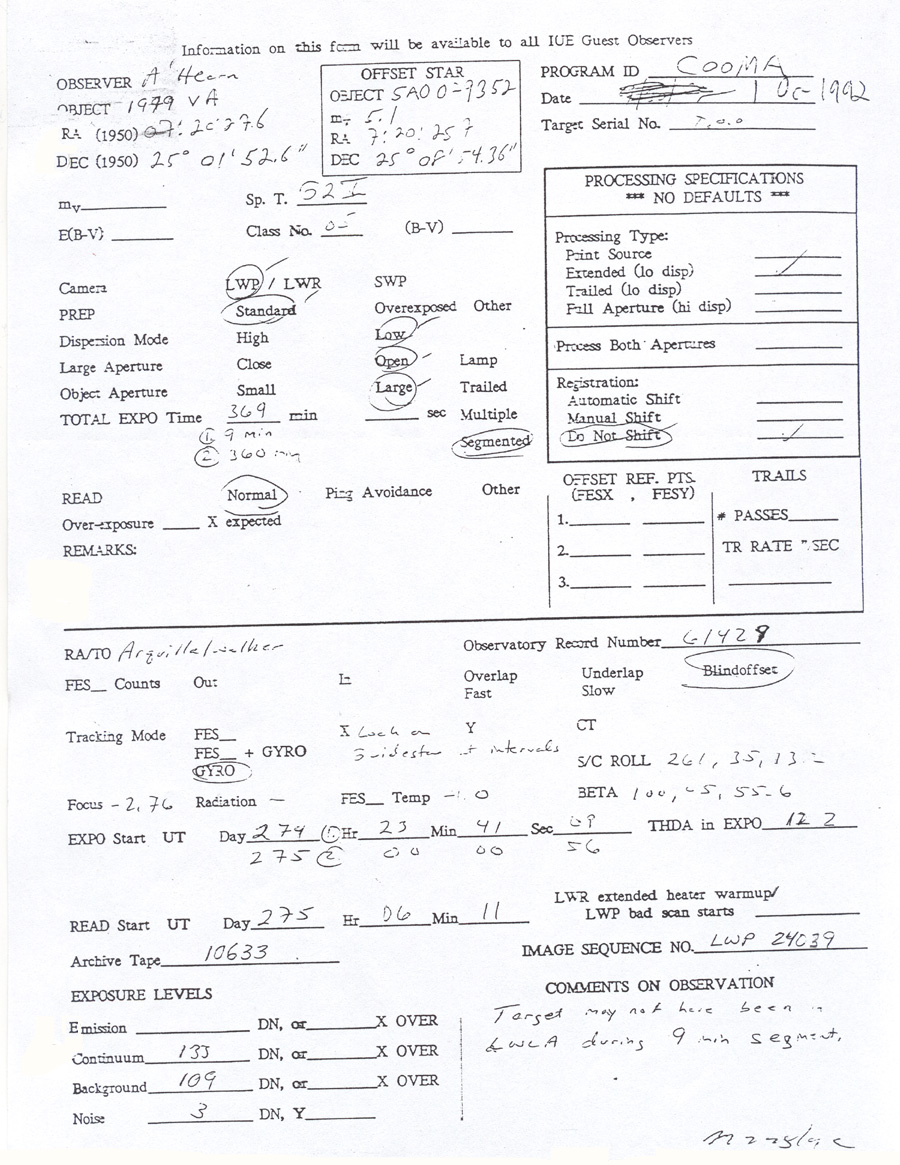 Information on this form will be available to all IUE Guest Observers
OBSERVER A'Hearn
OBJECT 1979 VA
RA (1950) 07:20:27.6
DEC (1950) 25° 01' 52.6"
OFFSET STAR
OBJECT SAO
mv 5.1
RA 7:20:25
DEC 25° 08' 54.36"
PROGRAM ID COOMA
Date 1 Oc 1992
Target Serial No. T.0.0
mv
Sp. T.
E(B-V)
Class No.
(B-V)
PROCESSING SPECIFICATIONS
*** NO DEFAULTS ***
Processing Type:
Point Source
Extended (lo disp) ✓
Trailed (lo disp)
Full Aperture (hi disp)
Process Both Apertures
Registration:
Automatic Shift
Manual Shift
Do Not Shift ✓
Camera LWP / LWR SWP
PREP Standard Overexposed Other
Dispersion Mode High Low
Large Aperture Close Open Lamp
Object Aperture Small Large Trailed
TOTAL EXPO Time 369 min sec Multiple
① 9 min Segmented
② 360 min
READ Normal Ping Avoidance Other
Over-exposure X expected
REMARKS:
OFFSET REF. PTS.
(FESX , FESY)
1.
2.
3.
TRAILS
# PASSES
TR RATE "SEC
RA/TO
Observatory Record Number
FES Counts Out In Overlap Underlap Blindoffset
Fast Slow
Tracking Mode FES X Lock on Y CT
FES + GYRO at intervals
GYRO
S/C ROLL 261, 35, 13
Focus -2.76 Radiation — FES Temp
BETA 100,
EXPO Start UT Day 274 ① Hr 23 Min 41 Sec 09 THDA in EXPO 12 2
275 ② 00 00 56
LWR extended heater warmup/
LWP bad scan starts
READ Start UT Day 275 Hr 06 Min 11
IMAGE SEQUENCE NO. LWP 24039
Archive Tape 10633
EXPOSURE LEVELS
Emission DN, or X OVER
Continuum DN, or X OVER
Background 109 DN, or X OVER
Noise 3 DN, Y
COMMENTS ON OBSERVATION
Target may not have been in
LWLA during 9 min segment.